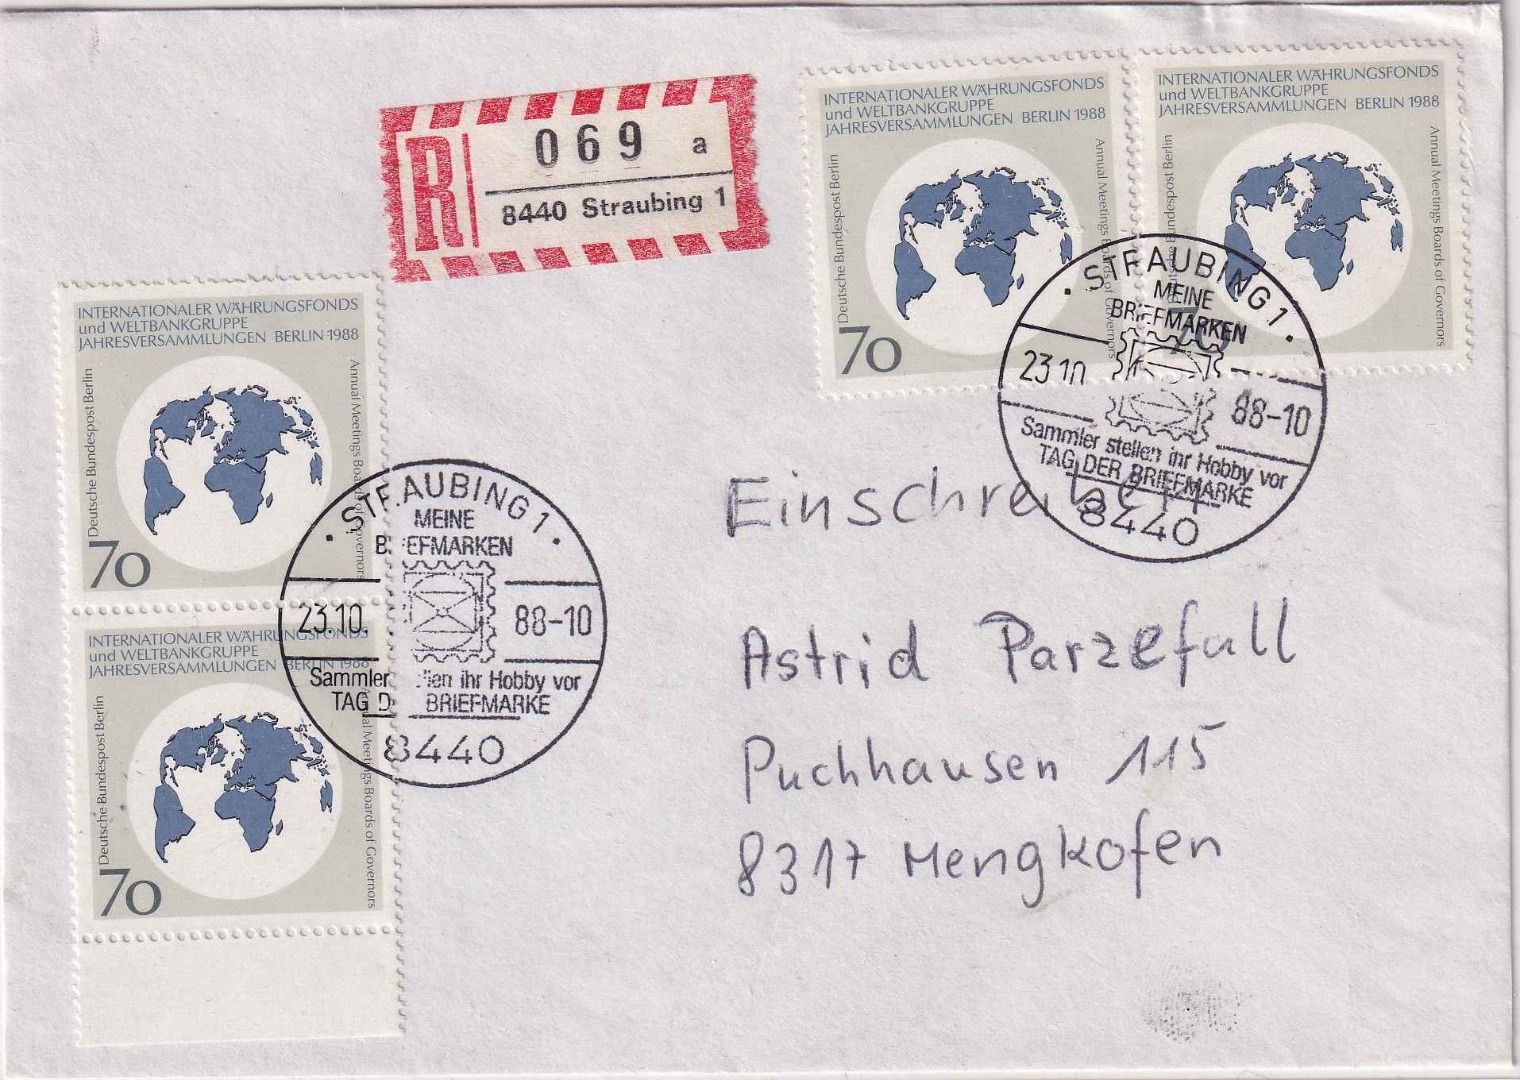 R
069 a
8440 Straubing 1
INTERNATIONALER WÄHRUNGSFONDS
und WELTBANKGRUPPE
JAHRESVERSAMMLUNGEN BERLIN 1988
Deutsche Bundespost Berlin
Annual Meetings Boards of Governors
70
INTERNATIONALER WÄHRUNGSFONDS
und WELTBANKGRUPPE
JAHRESVERSAMMLUNGEN BERLIN 1988
Deutsche Bundespost Berlin
Annual Meetings Boards of Governors
70
STRAUBING 1
MEINE
BRIEFMARKEN
23.10. 88-10
Sammler stellen ihr Hobby vor
TAG DER BRIEFMARKE
8440
INTERNATIONALER WÄHRUNGSFONDS
und WELTBANKGRUPPE
JAHRESVERSAMMLUNGEN BERLIN 1988
Deutsche Bundespost Berlin
Annual Meetings Boards of Governors
70
INTERNATIONALER WÄHRUNGSFONDS
und WELTBANKGRUPPE
JAHRESVERSAMMLUNGEN BERLIN 1988
Deutsche Bundespost Berlin
Annual Meetings Boards of Governors
70
STRAUBING 1
MEINE
BRIEFMARKEN
23.10. 88-10
Sammler stellen ihr Hobby vor
TAG DER BRIEFMARKE
8440
Einschreiben
Astrid Parzefall
Puchhausen 115
8317 Mengkofen